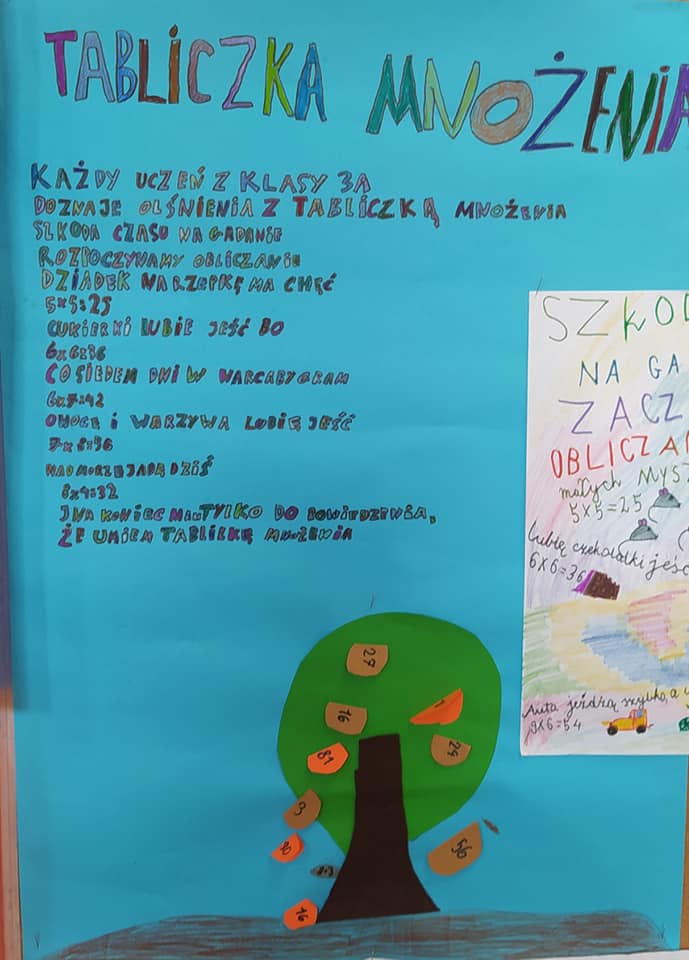 TABLICZKA MNOŻENIA
KAŻDY UCZEŃ Z KLASY 3A
DOZNAJE OLŚNIENIA Z TABLICZKĄ MNOŻENIA
SZKODA CZASU NA GADANIE
ROZPOCZYWAMY OBLICZANIE
DZIADEK NA RZEPKĘ MA CHĘĆ
5×5=25
CUKIERKI LUBIE JEŚĆ BO
6×6=36
CO SIEDEM DNI W WARCABY GRAM
6×7=42
OWOCE I WARZYWA LUBIĘ JEŚĆ
7×8=96
NAD MORZE JADĄ DZIŚ
8×4=32
I NA KONIEC MAM TYLKO DO POWIEDZENIA,
ŻE UMIEM TABLICKĘ MNOŻENIA
SZKOD
NA GA
ZACZ
OBLICZAN
małych MYSZ
5×5=25
Lubię czekoladki jeść
6×6=36
Auta jeżdżą szybko, a
9×6=54
27
16
1
81
24
3
80
50
16